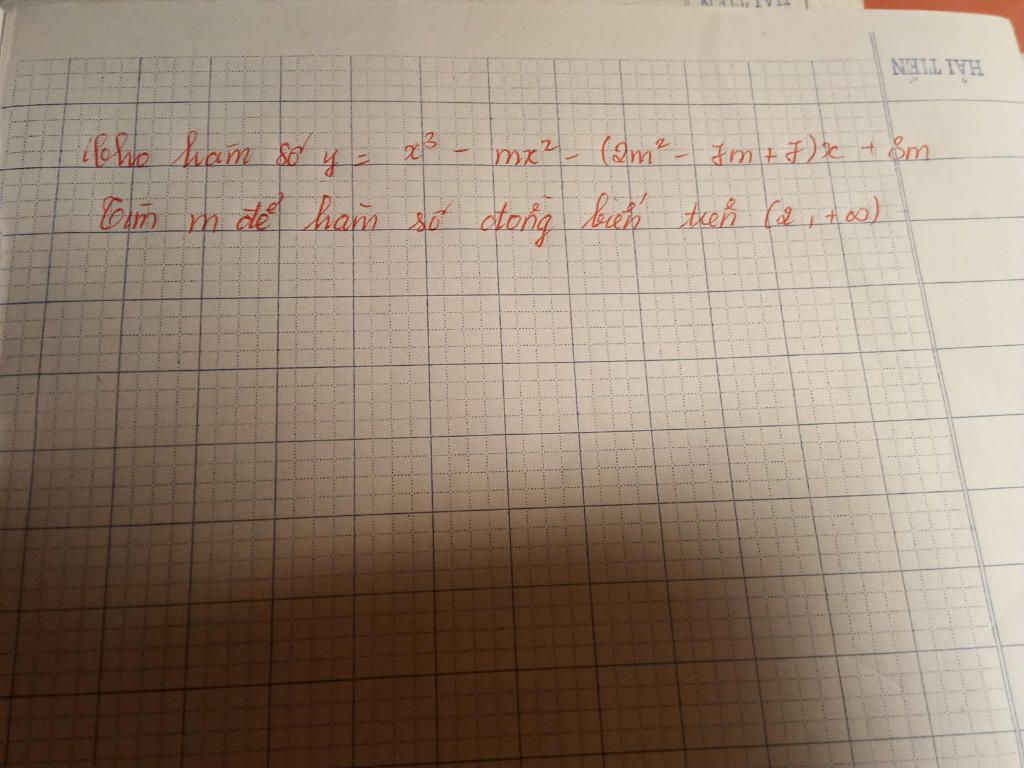 HẢI TIẾN
Cho hàm số y = x³ - mx² - (2m² - 7m + 7)x + 3m
Tìm m để hàm số đồng biến trên (2, +∞)